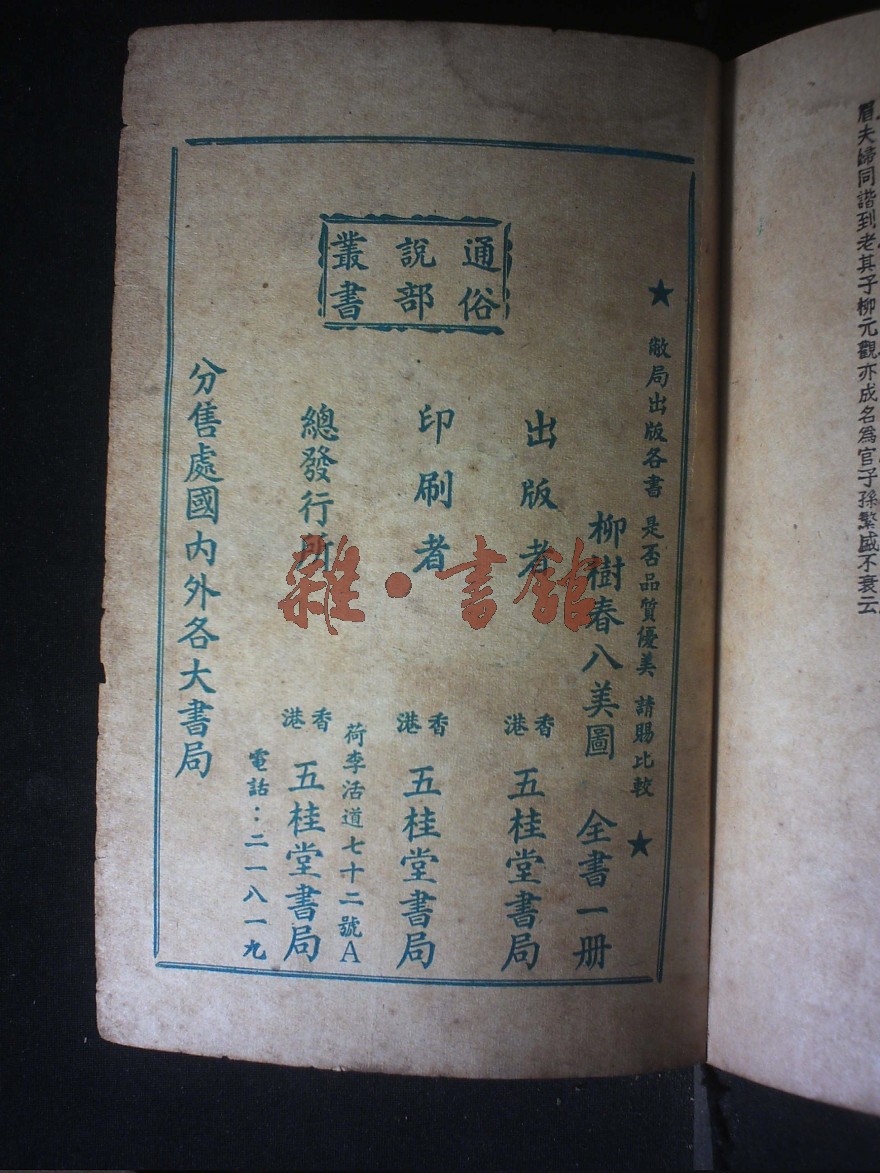 眉夫婦同諧到老其子柳元觀亦成名爲官子孫繁盛不衰云
通俗
說部
叢書
★ 敝局出版各書 是否品質優美 請賜比較 ★
柳樹春八美圖 全書一册
出版者 香港 五桂堂書局
印刷者 香港 五桂堂書局
荷李活道七十二號A
總發行所 香港 五桂堂書局
電話：二一八一九
分售處國內外各大書局
雜·書館